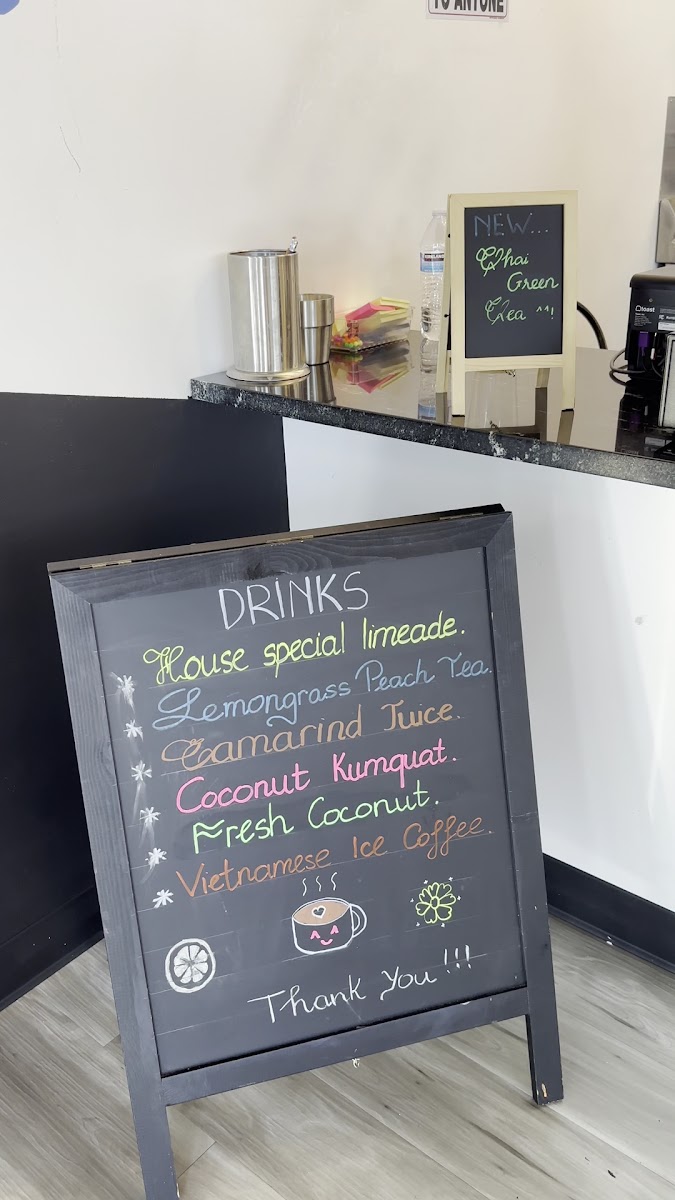 TO ANYONE
NEW...
Chai
Green
Tea ^^!
toast
DRINKS
House special limeade.
Lemongrass Peach Tea.
Tamarind Juice.
Coconut Kumquat.
Fresh Coconut.
Vietnamese Ice Coffee.
Thank You!!!